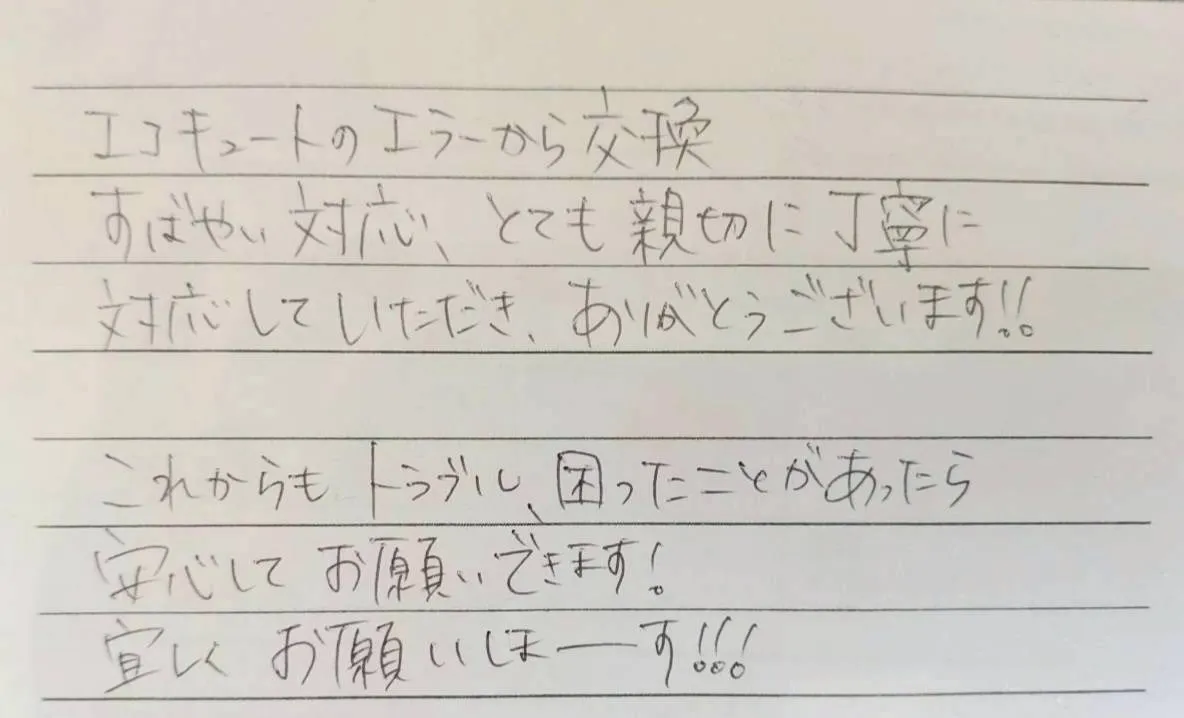 エコキュートのエラーから交換
すばやい対応、とても親切に丁寧に
対応していただき、ありがとうございます!!
これからもトラブル、困ったことがあったら
安心してお願いできます!
宜しくお願いしまーす!!!